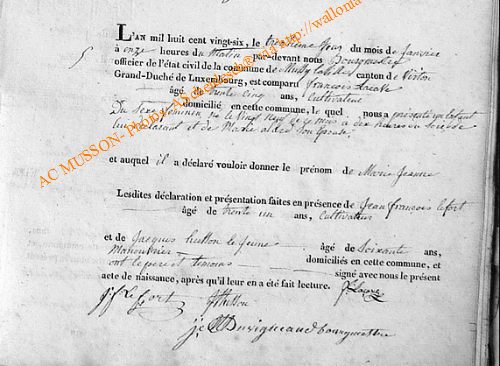 L'AN mil huit cent vingt-six, le trentième jour du mois de Janvier
à onze heures du Matin par-devant nous Bourgmestre
officier de l'état civil de la commune de Mussy canton de Virton
Grand-Duché de Luxembourg, est comparu François
âgé de trente cinq ans, Cultivateur
domicilié en cette commune, le quel nous a présenté un Enfant
Du Sexe féminin né le vingt neuf de ce mois à dix heures du Soir de
lui déclarant et de Marie Son épouse
et auquel il a déclaré vouloir donner le prénom de Marie Jeanne
Lesdites déclaration et présentation faites en présence de Jean françois lefort
âgé de trente un ans, Cultivateur
et de Jacques husson le Jeune âgé de Soixante ans,
Manouvrier domiciliés en cette commune, et
ont le père et témoins signé avec nous le présent
acte de naissance, après qu'il leur en a été fait lecture.
j f le fort
J husson
bourgmestre
AC MUSSON- Photos http://wallonia